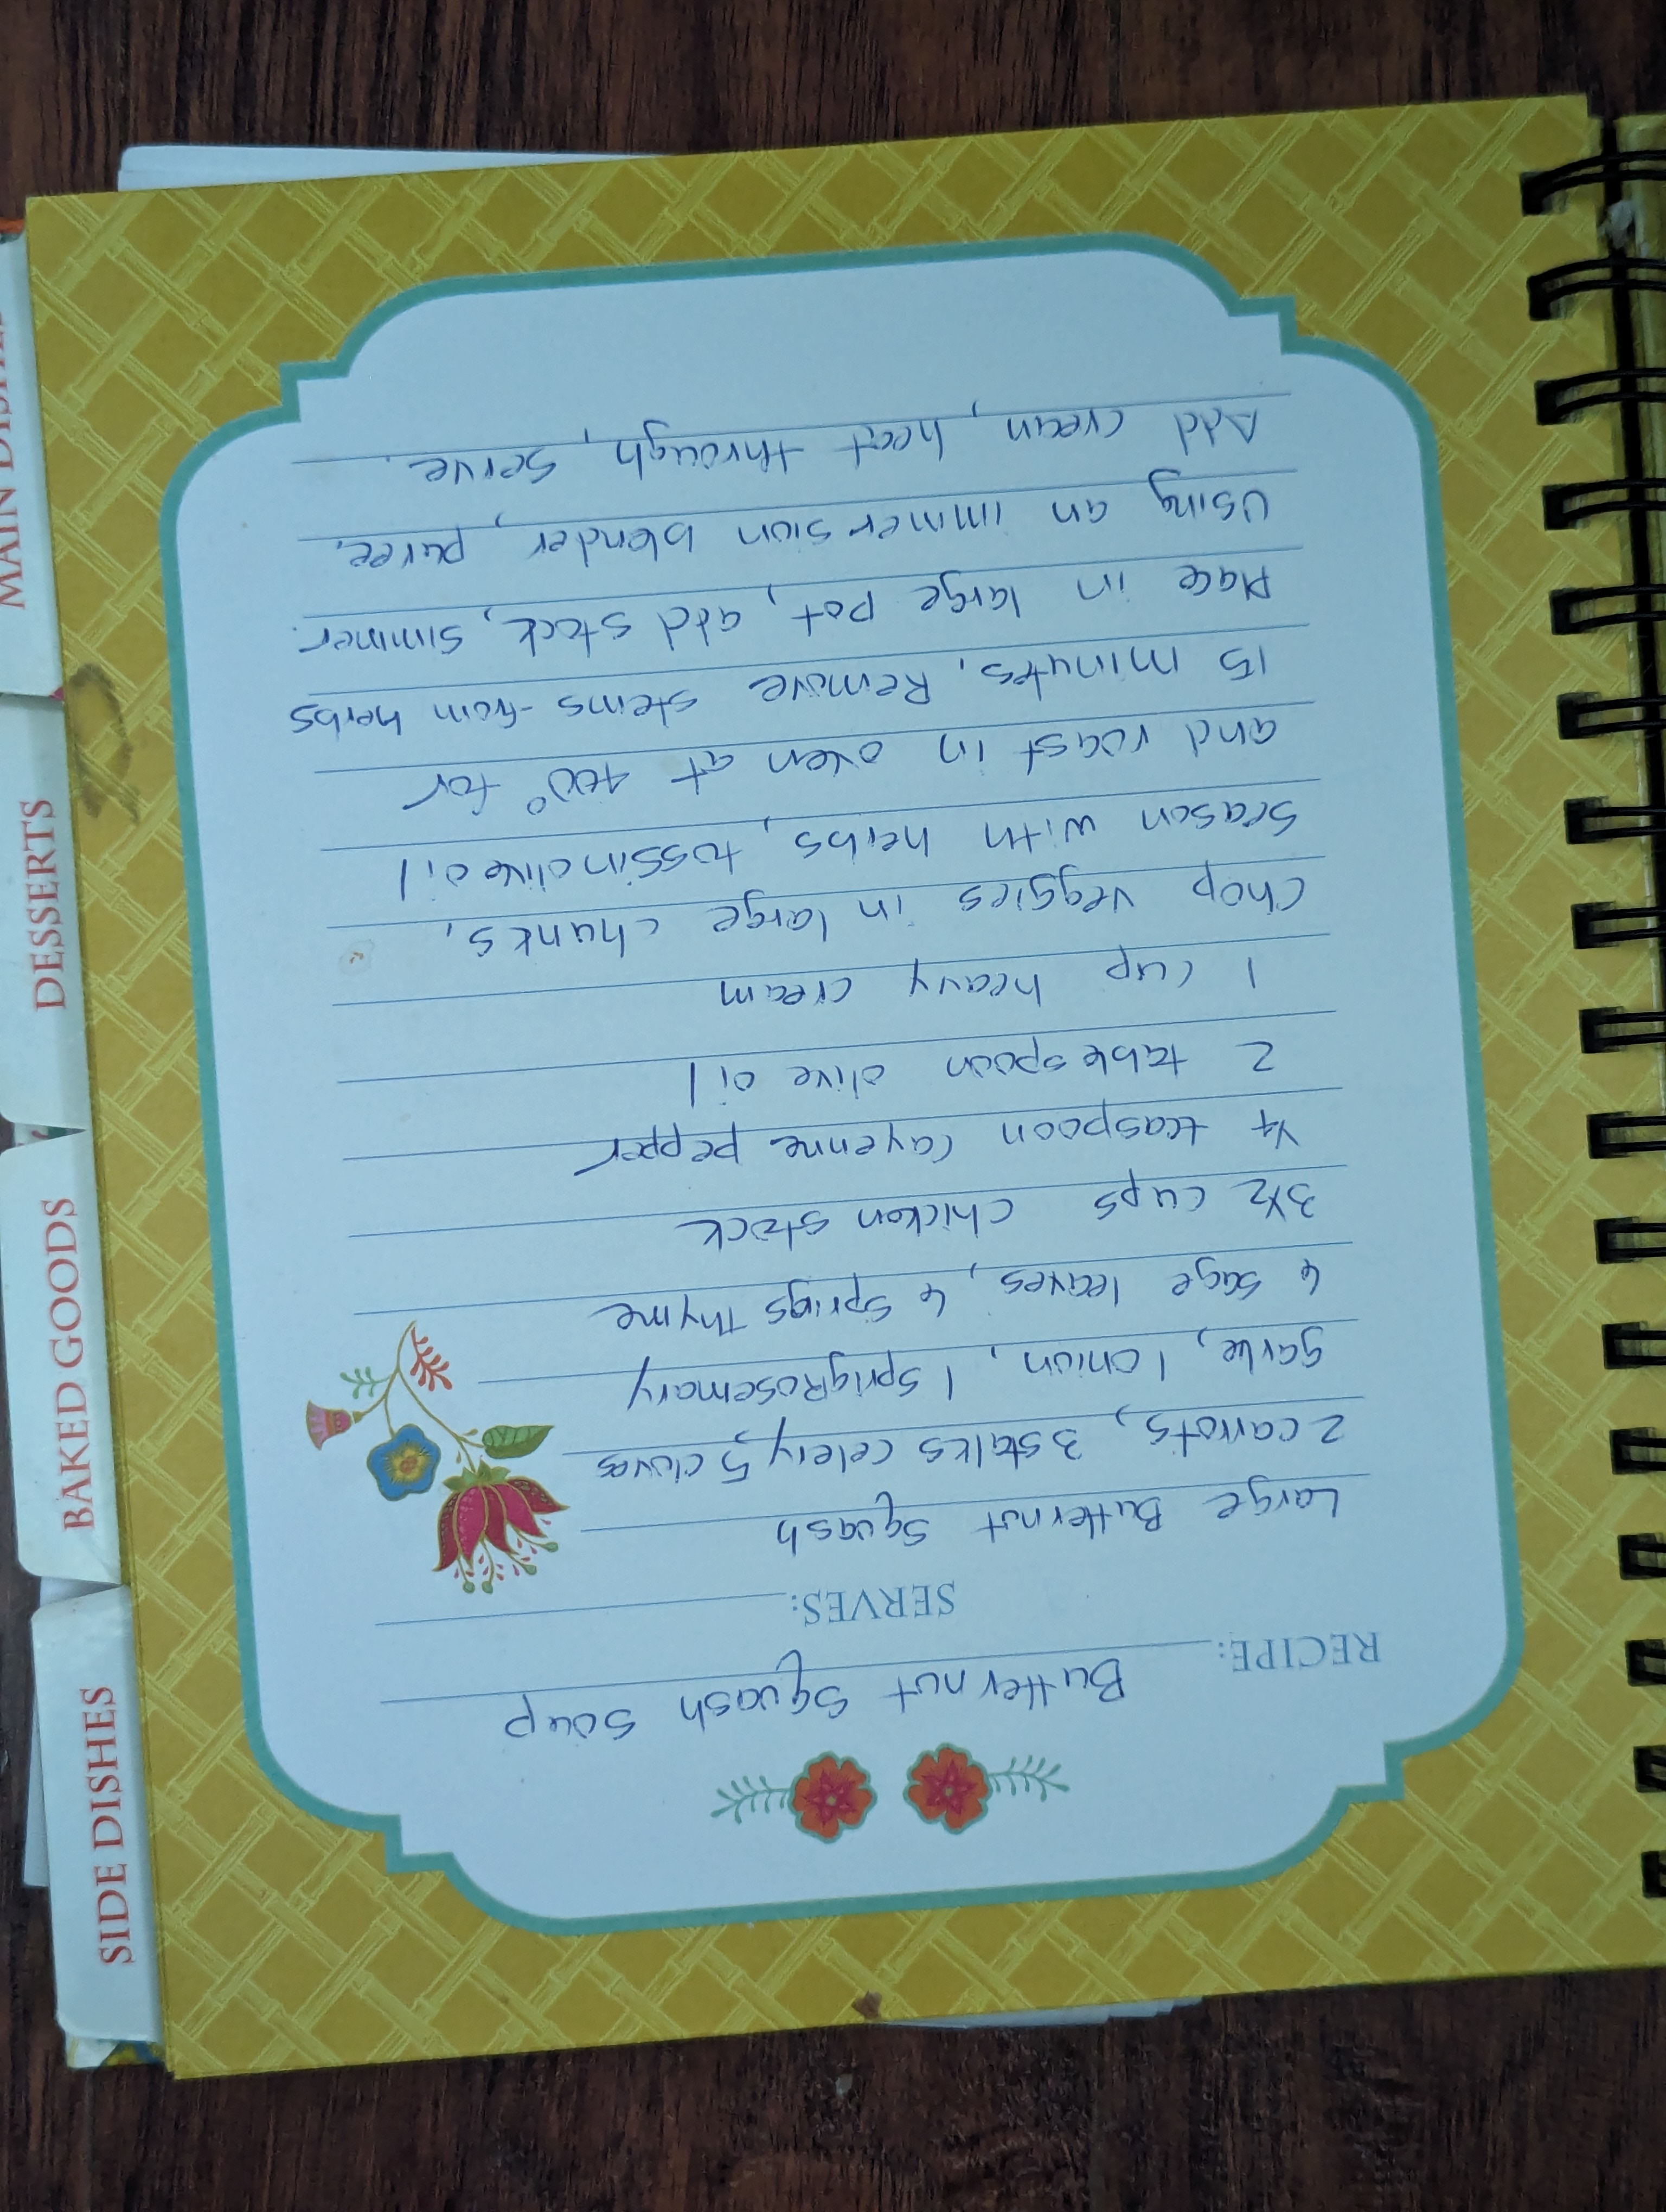 RECIPE: Butternut Squash Soup
SERVES:
Large Butternut Squash
2 carrots, 3 stalks celery, 5 cloves
garlic, 1 onion, 1 sprig Rosemary
6 sage leaves, 6 sprigs thyme
3 1/2 cups chicken stock
1/4 teaspoon cayenne pepper
2 tablespoon olive oil
1 cup heavy cream
Chop veggies in large chunks,
Season with herbs, toss in olive oil
and roast in oven at 400° for
15 minutes. Remove stems from herbs
Place in large pot, add stock, simmer.
Using an immersion blender, puree.
Add cream, heat through, serve.
SIDE DISHES
BAKED GOODS
DESSERTS
MAIN DISHES